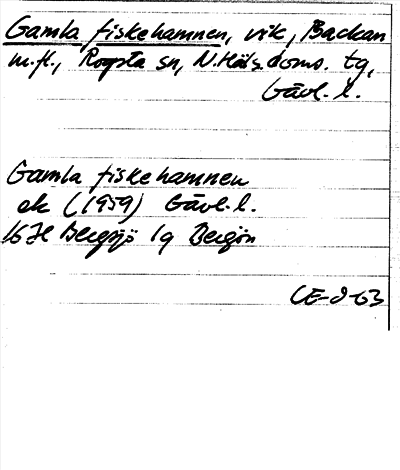 Gamla fiskehamnen, vik, Backan
m.fl., Rogsta sn, N.Häls. doms. tg,
Gävl. l.
Gamla fiskehamnen
ek (1959) Gävl. l.
16H Bergsjö 1g Bergön
CE-8-63